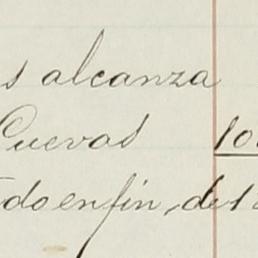 s alcanza
Cuevas 10
do en fin, de